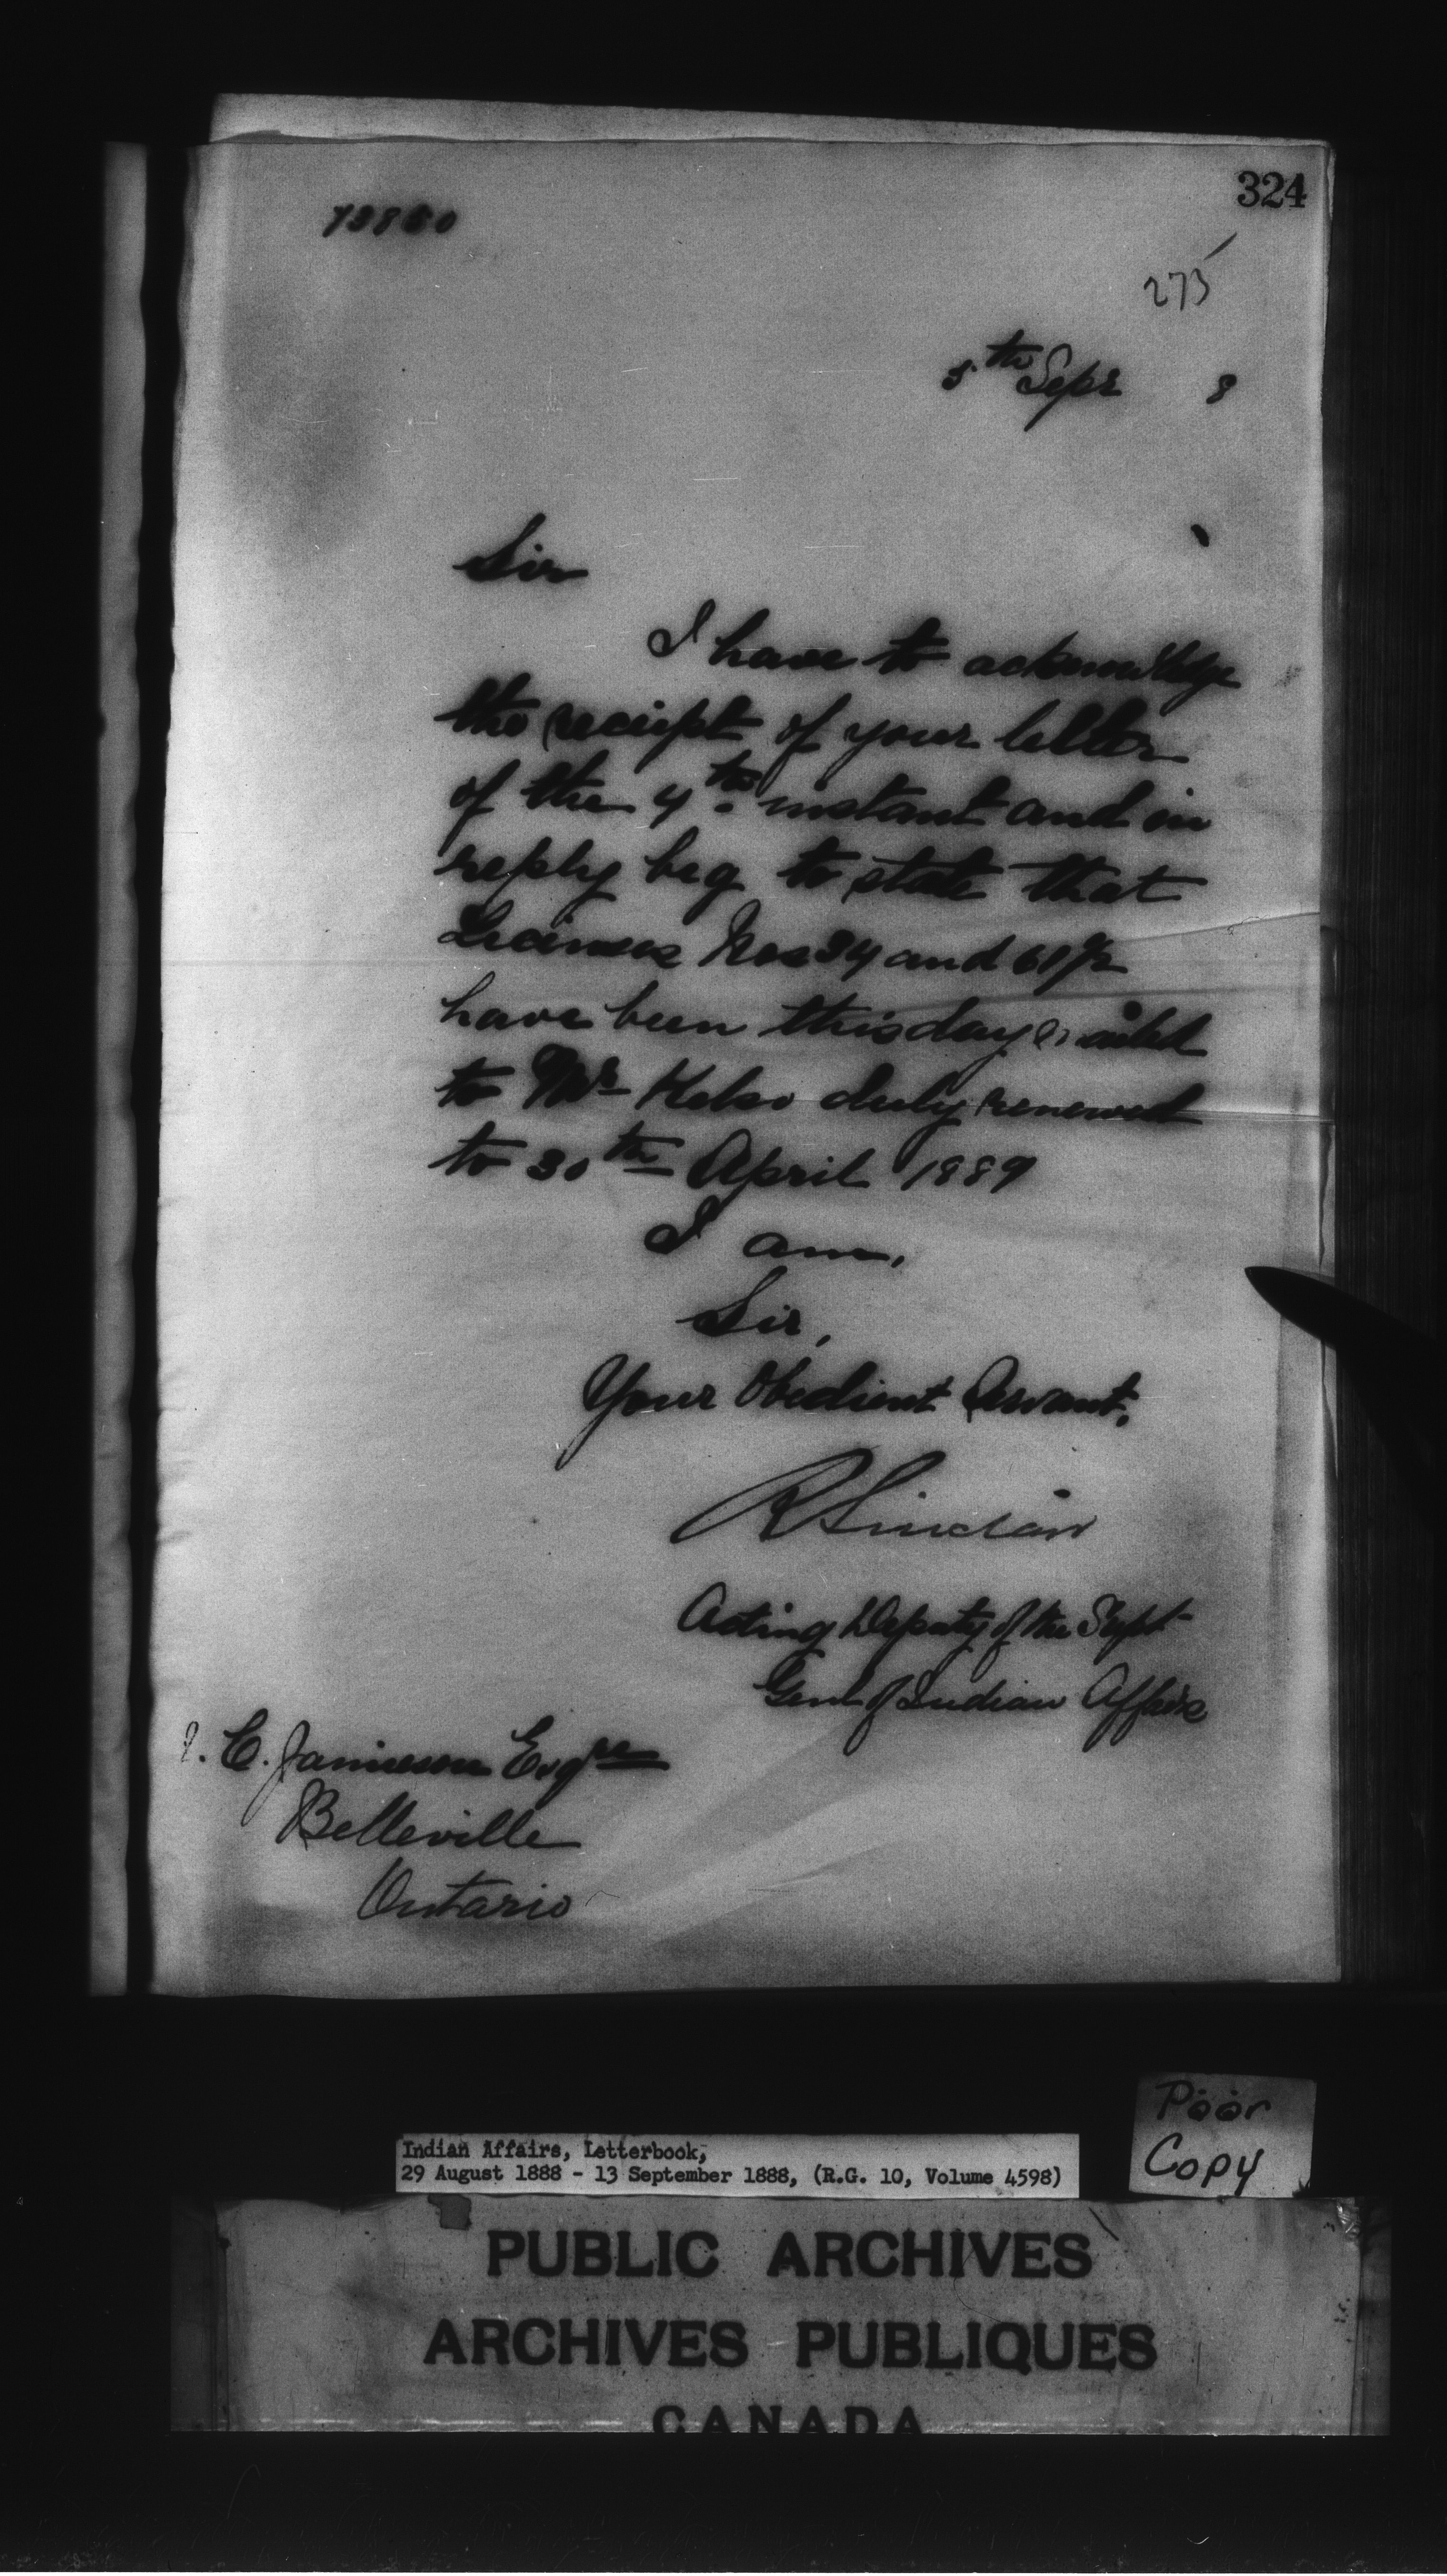 324
73860
275
5th Sepr 8
Sir
I have to acknowledge
the receipt of your letter
of the 4th instant and in
reply beg to state that
Licenses Nos 34 and 61½
have been this day mailed
to Mr Kelso duly renewed
to 30th April 1889
I am,
Sir,
Your Obedient Servant,
R Sinclair
Acting Deputy of the Supt
Genl of Indian Affairs
C. Jamieson Esqre
Belleville
Ontario
Poor
Copy
Indian Affairs, Letterbook,
29 August 1888 - 13 September 1888, (R.G. 10, Volume 4598)
PUBLIC ARCHIVES
ARCHIVES PUBLIQUES
CANADA